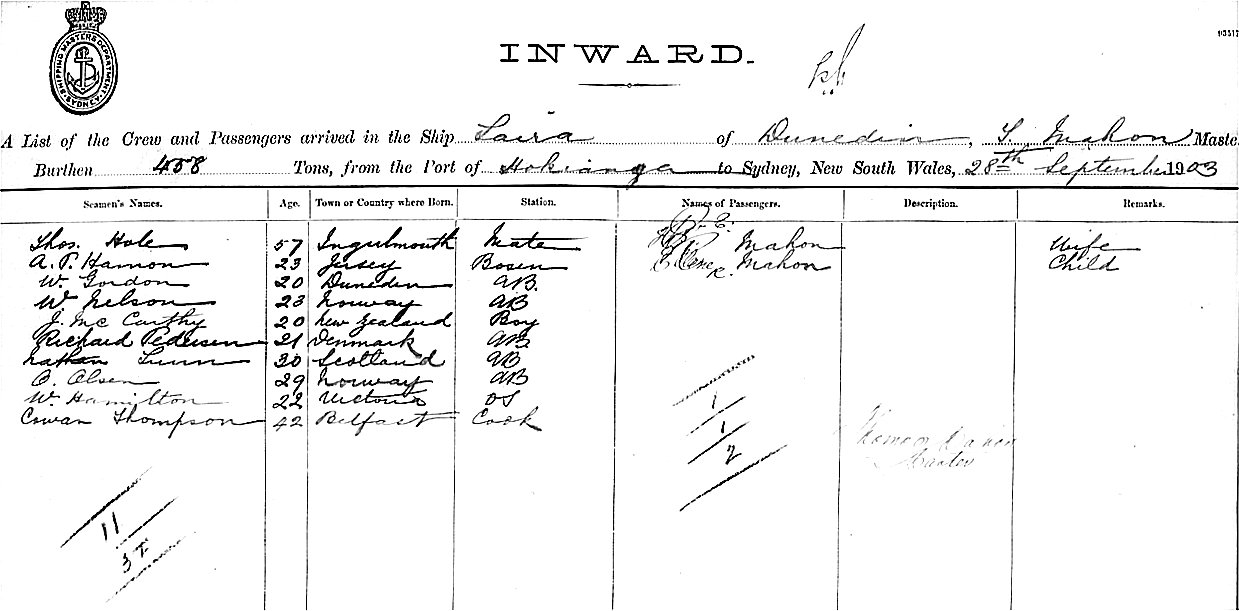 SHIPPING MASTERS DEPARTMENT SYDNEY
INWARD.
A List of the Crew and Passengers arrived in the Ship Laira of Dunedin, S. Mahon Maste
Burthen 458 Tons, from the Port of Hokianga to Sydney, New South Wales, 28th September 1903
Seamen's Names. Age. Town or Country where Born. Station. Names of Passengers. Description. Remarks.
Thos. Hole 57 Mate Mahon Wife
A. P. Hamon 23 Jersey Bosen Mahon Child
W. Gordon 20 Dunedin AB.
W Nelson 23 Norway AB
J. Mc Carthy 20 New Zealand Boy
Richard Pedersen 21 Denmark AB.
Nathan Lunn 30 Scotland AB
C. Olsen 29 Norway AB
W. Hamilton 22 Victoria OS
Cowan Thompson 42 Belfast Cook
1
1
2
Master
11